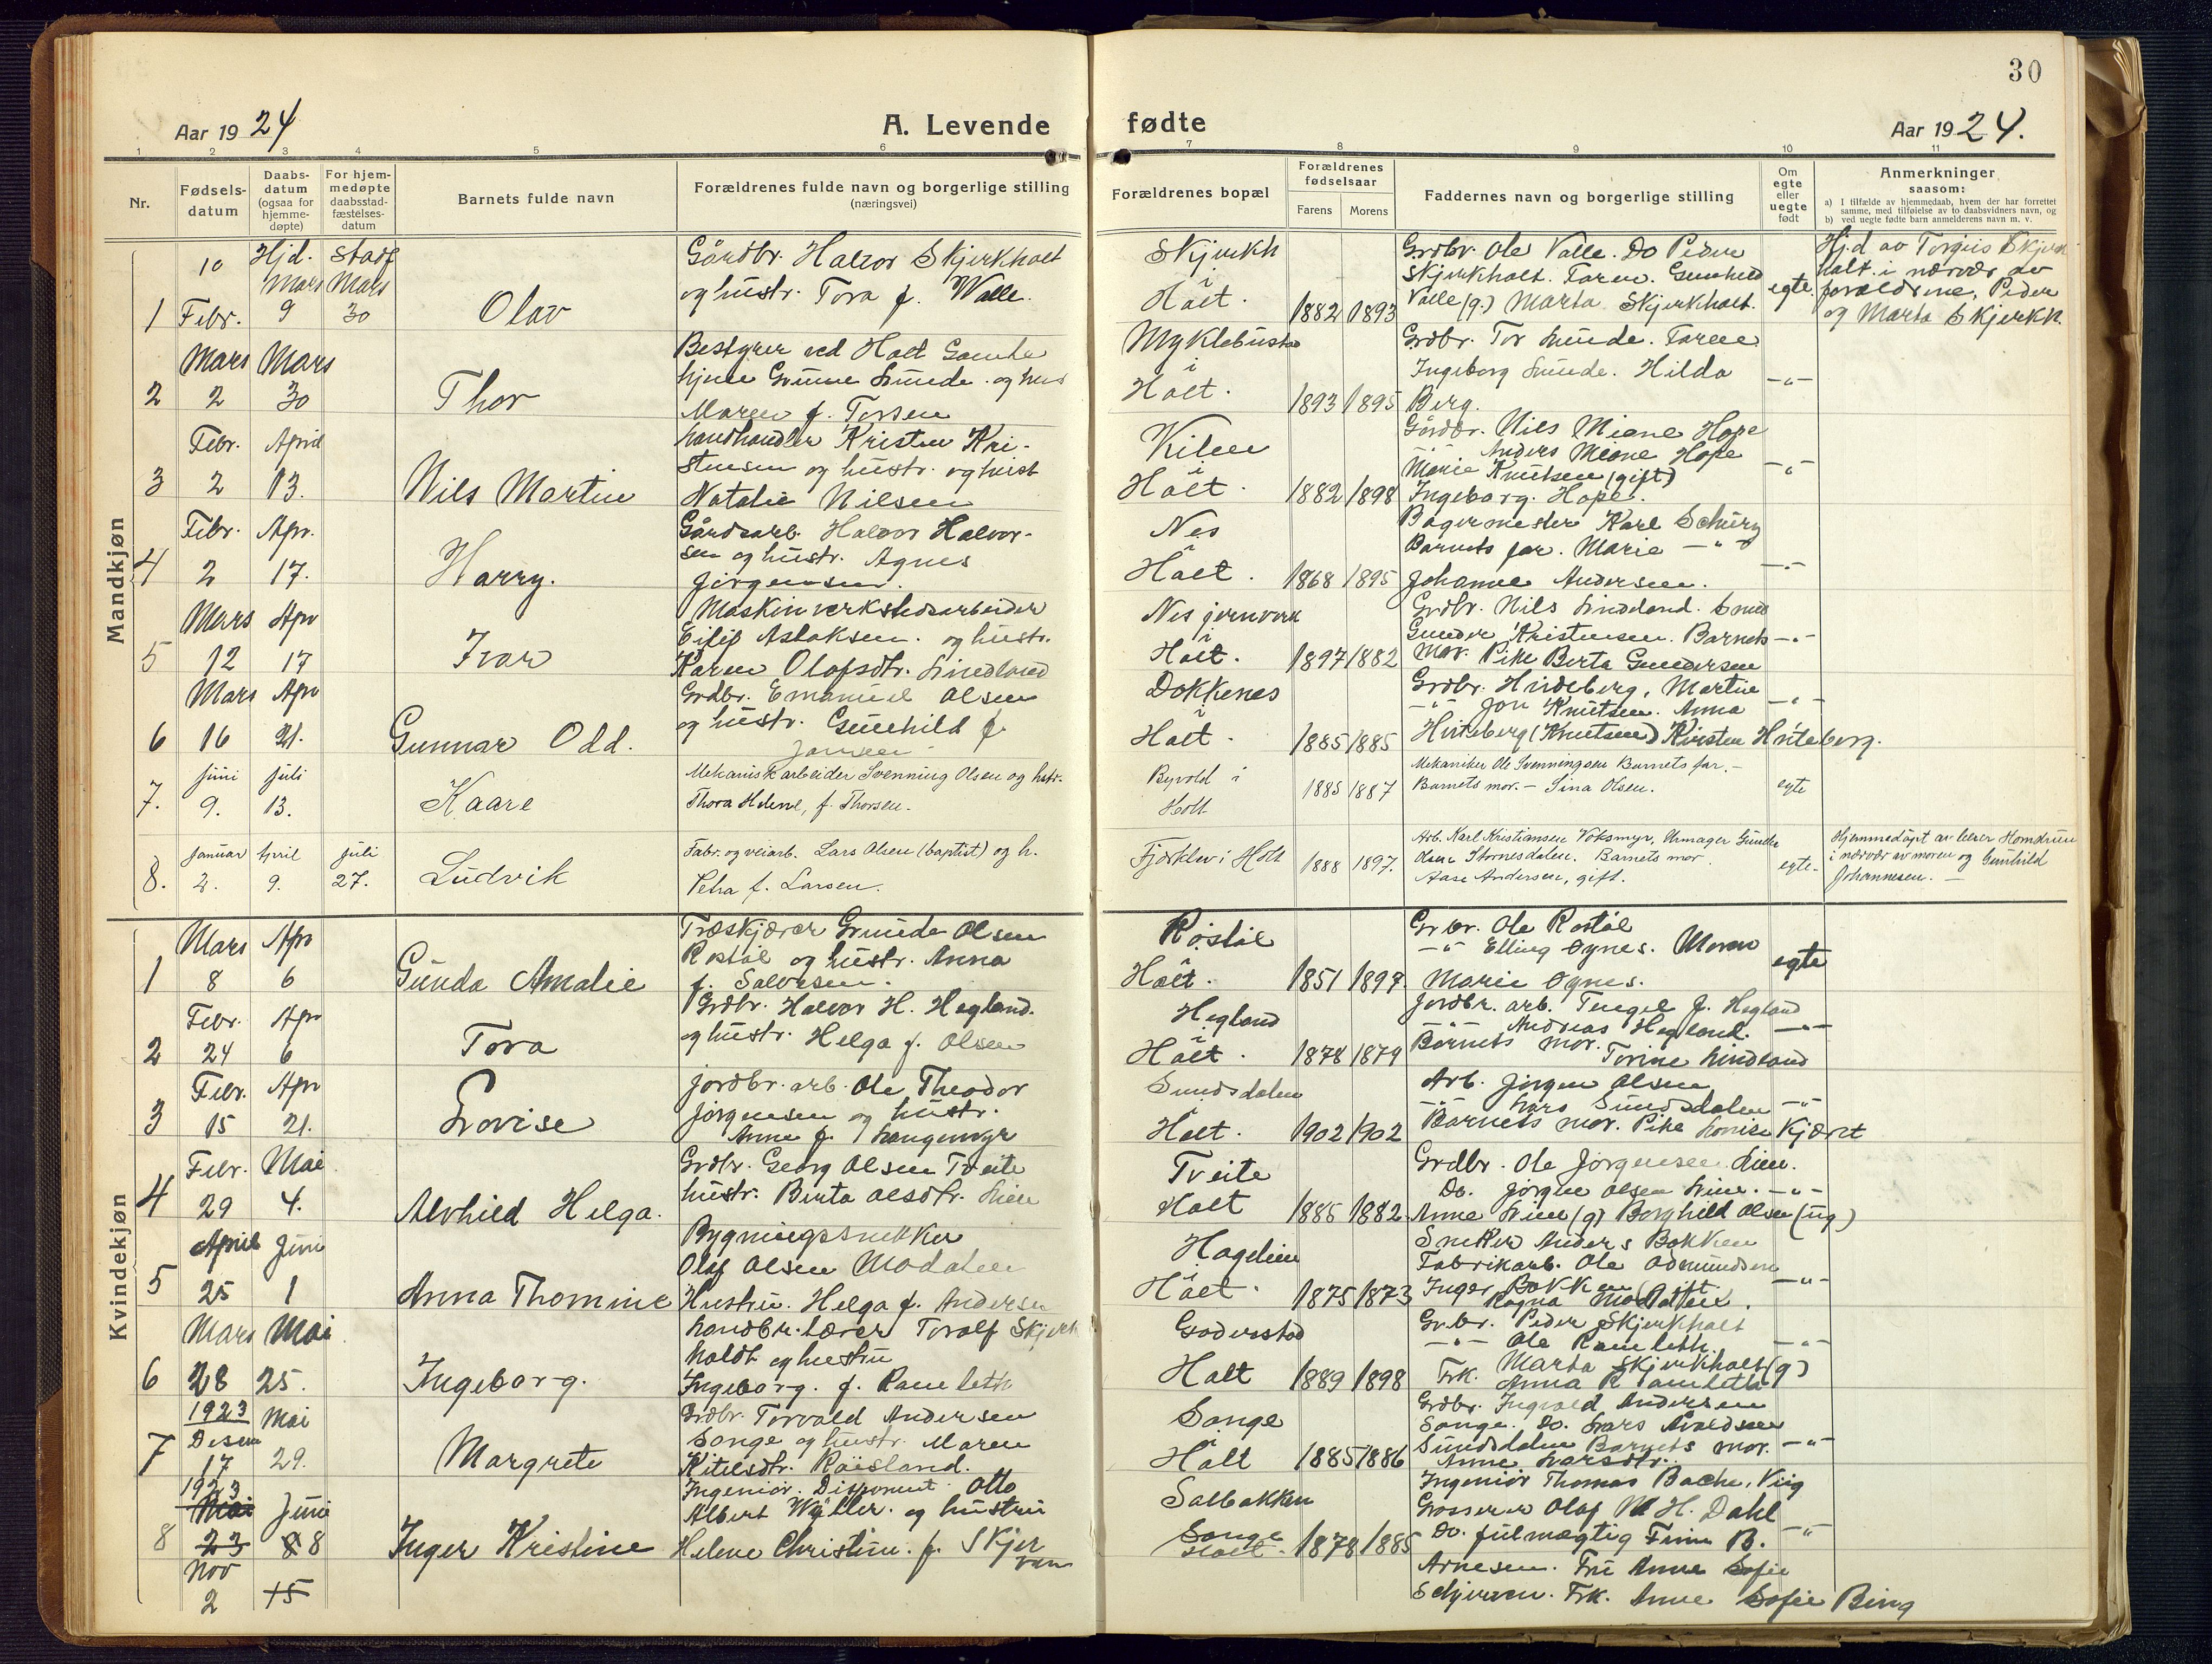 30
Aar 1924
A. Levende
fødte
Aar 1924.
1 2 3 4 5 6 7 8 9 10 11
Nr.
Fødsels-
datum
Daabs-
datum
(ogsaa for
hjemme-
døpte)
For hjem-
medøpte
daabsstad-
fæstelses-
datum
Barnets fulde navn
Forældrenes fulde navn og borgerlige stilling
(næringsvei)
Forældrenes bopæl
Forældrenes
fødselsaar
Farens Morens
Faddernes navn og borgerlige stilling
Om
egte
eller
uegte
født
Anmerkninger
saasom:
a) I tilfælde av hjemmedaab, hvem der har forrettet
samme, med tilføielse av to daabsvidners navn, og
b) ved uegte fødte barn anmelderens navn m. v.
Mandkjøn
1
10
Febr.
Hjd.
Mars
9
Stadf
Mars
30
Olav
Gårdbr. Halvor Skjerkholt
og hustr. Tora f. Valle.
Skjerkh
i
Holt.
1882 1893
Grdbr. Ole Valle. Do Peder
Skjerkholt. Faren. Gunhild
Valle (g.) Marta Skjerkholt.
egte.
Hj.d av Torgius Skjerk
holt i nærvær av
forældrene, Peder
og Marta Skjerkh.
2
Mars
2
Mars
30
Thor
Bestyrer ved Holt Gamle
hjem Grunne Lunde. og hus
Maren f. Torsen
Myklebustad
i
Holt.
1893 1895
Grdbr. Tor Lunde. Faren
Ingeborg Lunde. Hilda
Berg.
-"-
3
Febr.
2
April
13.
Nils Martin
Landhandler Kristen Kri-
stensen og hustr.
Natalie Nilsen
Kilen
i
Holt.
1882 1898
Gårdbr. Nils Miane Hope
-"- Anders Miane Hope
Marie Knutsen (gift)
Ingeborg. Hope.
-"-
4
Febr.
2
Apr.
17.
Harry.
Gårdsarb. Halvor Halvor-
sen og hustr. Agnes
Jørgensen.
Nes
i
Holt.
1868 1895
Bagermester Karl Schürz
Barnets far. Marie -"-
Johanne Andersen.
-"-
5
Mars
12
Apr
17
Ivar
Maskinverkstedsarbeider
Eilif Aslaksen. og hustr.
Karen Olafsdtr. Lindland
Nes jernverk
i
Holt.
1897 1882
Grdbr. Nils Lindland. Smed
Gunder Kristensen. Barnets
mor. Pike Berta Gundersen
-"-
6
Mars
16
Apr
21.
Gunnar Odd.
Grdbr. Emanuel Olsen
og hustr. Gunhild f.
Jansen
Dokkenes
i
Holt.
1885 1885
Grdbr. Hirdeberg, Martin
-"- Jon Knutsen. Anna
Hirteberg (Knutsen) Kirsten Hirteberg.
-"-
7.
Juni
9.
Juli
13.
Kaare
Mekanisk arbeider Svenning Olsen og hstr.
Thora Helene, f. Thorsen.
Byvold i
Holt
1885 1887
Mekaniker Ole Svenningsen Barnets far. -
Barnets mor. - Sina Olsen.
egte
8.
Januar
2.
April
9.
Juli
27.
Ludvik
Fabr. og veiarb. Lars Olsen (baptist) og h.
Petra f. Larsen.
Fjærkleiv i Holt
1888 1897.
Arb. Karl Kristiansen Voksmyr, Urmager Gunder
Olsen Stornesdalen. Barnets mor.
Aase Andersen, gift.
egte.
Hjemmedøpt av lærer Homdrum
i nærvær av moren og Gunhild
Johannesen. -
Kvindekjøn
1
Mars
8
Apr
6
Gunda Amalie
Træskjærer Grunde Olsen
Røstøl og hustr. Anna
f. Salvesen.
Røstøl
i
Holt.
1851 1897.
Grbr. Ole Røstøl
-"- Elling Øynes. Moren
Marie Øynes.
egte
2
Febr.
24
Apr
6
Tora
Grdbr. Halvor H. Hegland.
og hustr. Helga f. Olsen
Hegland
i
Holt.
1878 1879
Jordbr. arb. Tengel J. Hegland
-"- Andreas Hegland.
Barnets mor. Torine Lindland
-"-
3
Febr.
15
Apr
21.
Lovise
Jordbr. arb. Ole Theodor
Jørgensen og hustr.
Anne f. Langemyr
Sundsdalen
i
Holt.
1902 1902
Arb. Jørgen Olsen
-"- Lars Sundsdalen
Barnets mor. Pike Lovise Kjæret
-"-
4
Febr.
29
Mai
4.
Alvhild Helga.
Grdbr. Georg Olsen Tveite
hustr. Berta Olsdtr. Lien
Tveite
Holt
1885 1882.
Grdbr. Ole Jørgensen Lien.
Do. Jørgen Olsen Lien.
Anne Lien (g) Borghild Olsen (ug)
-"-
5
April
25
Juni
1
Anna Thomine
Bygningssnekker
Olaf Olsen Modalen
Hustru. Helga f. Andersen
Hagelien
i
Holt.
1875 1873
Snekker Anders Bakken
Fabrikarb. Ole Odmundsen
Inger Bakken (gift
Ragna Modalen.
-"-
6
Mars
28
Mai
25.
Ingeborg.
Landbr. Lærer Toralf Skjerk
holdt og hustru
Ingeborg. f. Ramleth
Goderstad
Holt
1889 1898
Grbr. Peder Skjerkholt
-"- Ole Ramleth.
Frk. Marta Skjerkholt (g)
Anna Ramleth
-"-
7
1923
Desem
17
Mai
29.
Margrete
Grdbr. Torvald Andersen
Songe og hustr. Maren
Kitelsdtr. Røisland.
Songe
i
Holt
1885 1886
Grdbr. Ingvald Andersen
Songe. Do. Lars Åvaldsen
Sundsdalen Barnets mor.
Anne Larsdtr.
-"-
8
1923
Mai
23
Nov
2
Juni
8
15
Inger Kristine
Ingeniør. Disponent Otto
Albert Wyller. og hustru
Helene Christine. f. Skjer
ven
Solbakken
Songe
Holt.
1878 1885
Ingeniør Thomas Bache, Viig
Grosserer Olaf M H. Dahl
Do. fulmægtig Finn B.
Arnesen. Fru Anne Sofie
Schjerven. Frk. Anne Sofie Bing
-"-